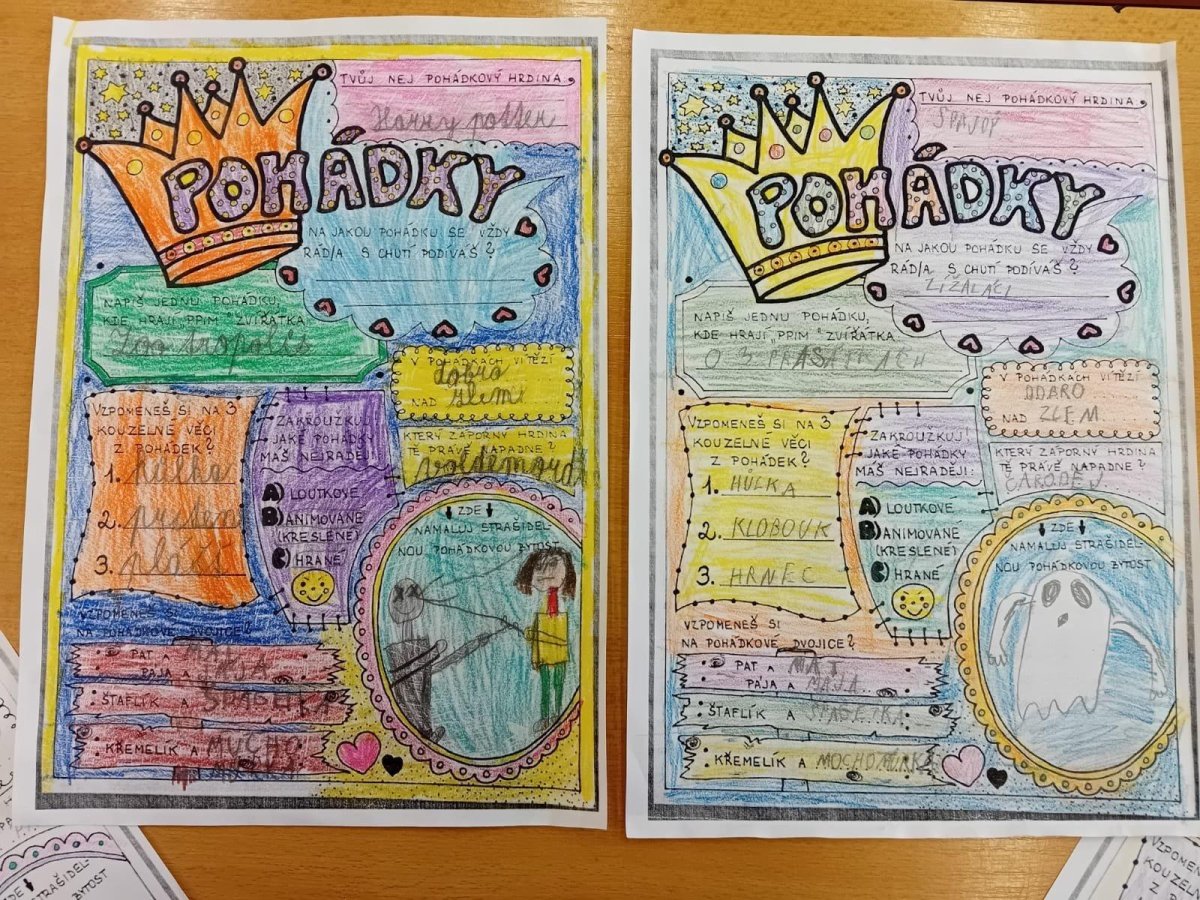 TVŮJ NEJ POHÁDKOVÝ HRDINA
Harry potter
POHÁDKY
NA JAKOU POHÁDKU SE VŽDY
RÁD/A S CHUTÍ PODÍVÁŠ?
NAPIŠ JEDNU POHÁDKU,
KDE HRAJÍ PRIM ZVÍŘÁTKA.
Zoo tropolis
V POHÁDKÁCH VÍTĚZÍ
dobro
NAD zlem
VZPOMENEŠ SI NA 3
KOUZELNÉ VĚCI
Z POHÁDEK?
1. hůlka
2. prsten
3. plášť
ZAKROUŽKUJ
JAKÉ POHÁDKY
MÁŠ NEJRADĚJI:
A) LOUTKOVÉ
B) ANIMOVANÉ
(KRESLENÉ)
C) HRANÉ
KTERÝ ZÁPORNÝ HRDINA
TĚ PRÁVĚ NAPADNE?
ZDE
NAMALUJ STRAŠIDEL-
NOU POHÁDKOVOU BYTOST
VZPOMENEŠ SI
NA POHÁDKOVÉ DVOJICE?
PAT A MAT
PÁJA A MÁJA
ŠTAFLÍK A
KŘEMELÍK A MUCHO
MŮRKA
TVŮJ NEJ POHÁDKOVÝ HRDINA
POHÁDKY
NA JAKOU POHÁDKU SE VŽDY
RÁD/A S CHUTÍ PODÍVÁŠ?
ŽÍŽALÁCI
NAPIŠ JEDNU POHÁDKU,
KDE HRAJÍ PRIM ZVÍŘÁTKA.
O 3 PRASÁTKÁCH
V POHÁDKÁCH VÍTĚZÍ
NAD ZLEM
VZPOMENEŠ SI NA 3
KOUZELNÉ VĚCI
Z POHÁDEK?
1. HŮLKA
2. KLOBOUK
3. HRNEC
ZAKROUŽKUJ
JAKÉ POHÁDKY
MÁŠ NEJRADĚJI:
A) LOUTKOVÉ
B) ANIMOVANÉ
(KRESLENÉ)
C) HRANÉ
KTERÝ ZÁPORNÝ HRDINA
TĚ PRÁVĚ NAPADNE?
ČARODĚJ
ZDE
NAMALUJ STRAŠIDEL-
NOU POHÁDKOVOU BYTOST
VZPOMENEŠ SI
NA POHÁDKOVÉ DVOJICE?
PAT A MAT
PÁJA A MÁJA
ŠTAFLÍK A
KŘEMELÍK A MOCHOMŮRKA